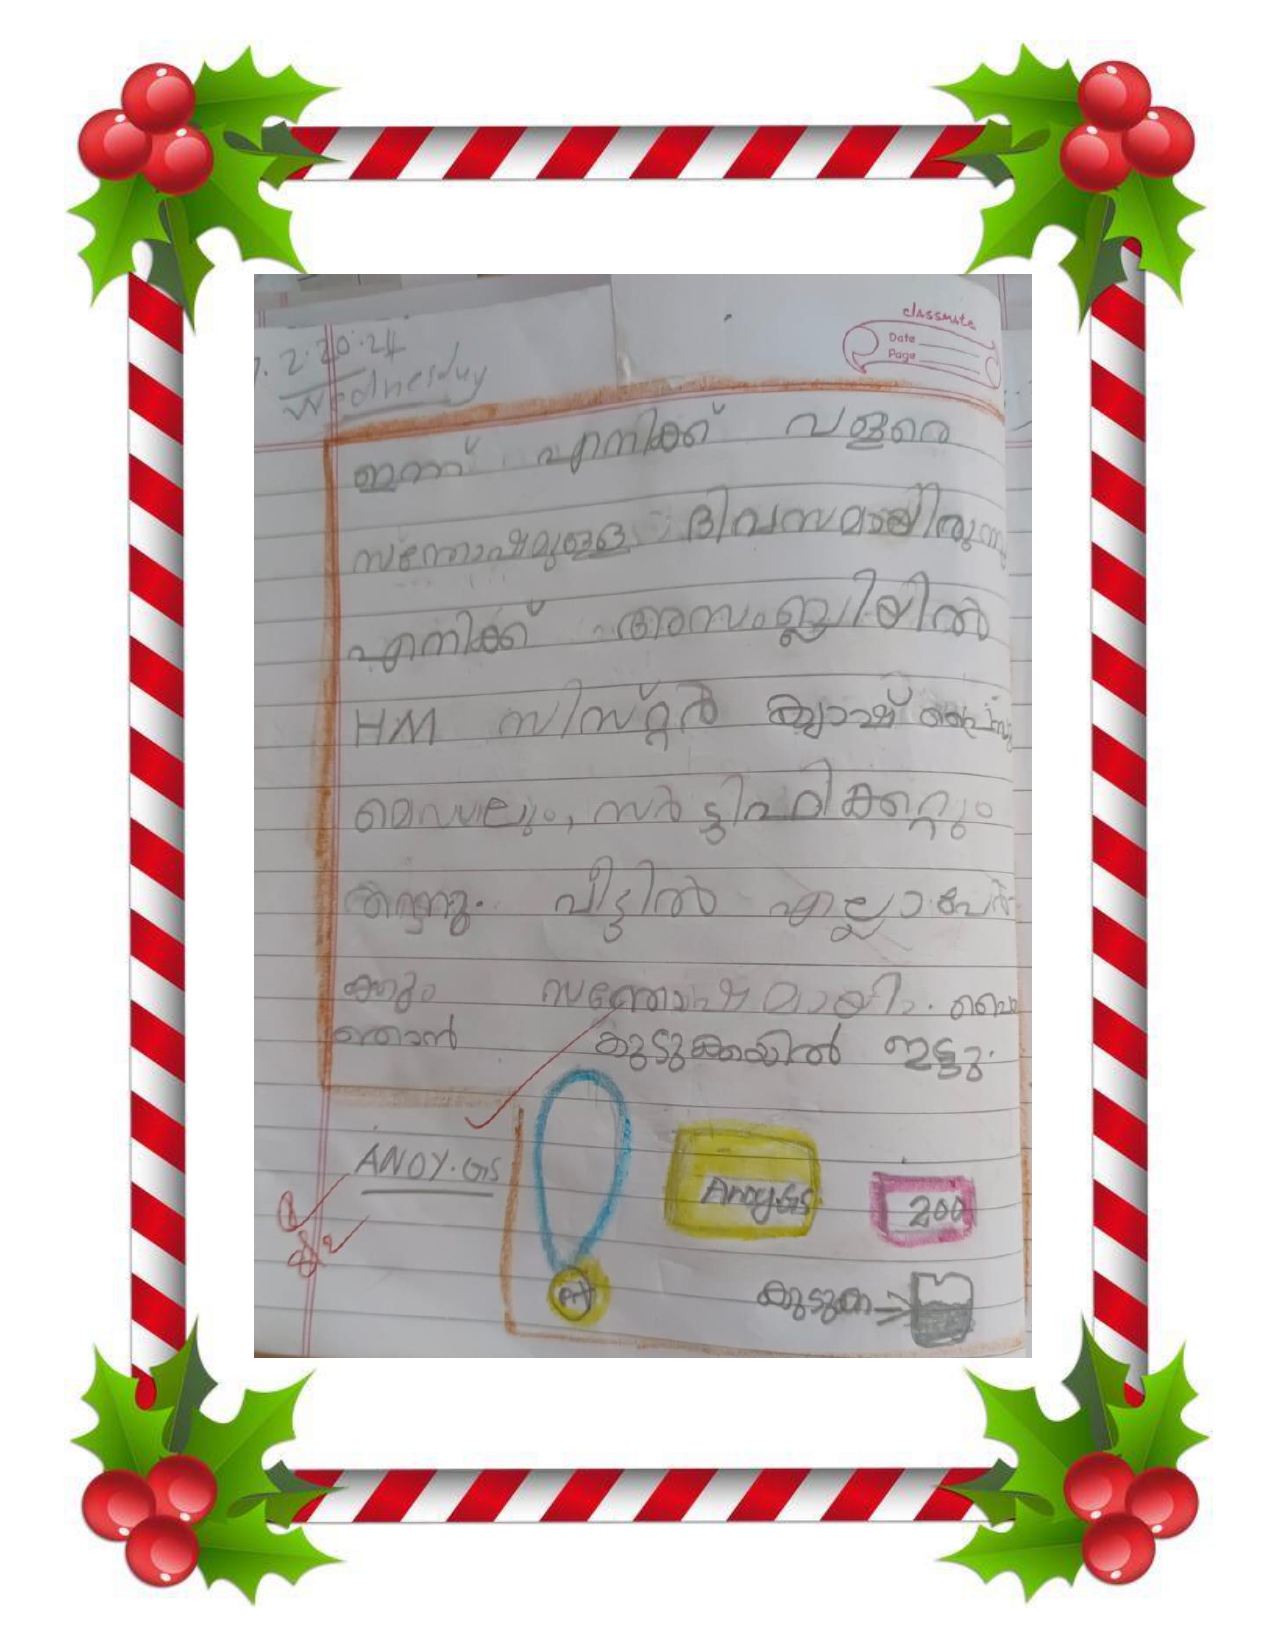 classmate
Date
Page
2.2024
Wednesday
ഇന്ന് എനിക്ക് വളരെ
സന്തോഷമുള്ള ദിവസമായിരുന്നു
എനിക്ക് അസംബ്ലിയിൽ
HM സിസ്റ്റർ ക്യാഷ് പ്രൈസും
മെഡലും, സർട്ടിഫിക്കറ്റും
തന്നു. വീട്ടിൽ എല്ലാപേർ
ക്കും സന്തോഷമായി.
ഞാൻ കുടുക്കയിൽ ഇട്ടു.
ANOY.GS
Anoy.GS
200
കുടുക്ക